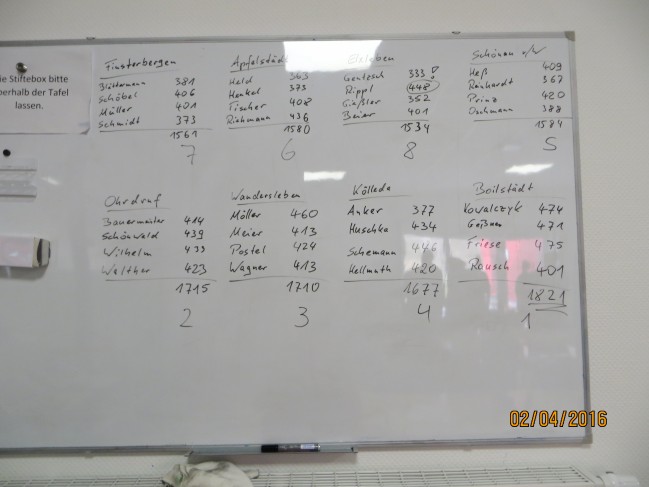 ie Stiftebox bitte
erhalb der Tafel
lassen.
Finsterbergen
381
Schöbel 406
Müller 401
Schmidt 373
1561
7
Apfelstädt
Held 363
Henkel 373
Fischer 408
Richmann 436
1580
6
333 !
Rippl 448
352
Beier 401
1534
8
Schönau v/W
Heß 409
Reinhardt 367
Prinz 420
Oschmann 388
1584
5
Ohrdruf
Bauermeister 414
Schönwald 439
Wilhelm 439
Walther 423
1715
2
Wandersleben
Möller 460
Meier 413
Postel 424
Wagner 413
1710
3
Kölleda
Anker 377
Huschka 434
Schemann 446
Hellmuth 420
1677
4
Boilstädt
Kowalczyk 474
471
Friese 475
Rausch 401
1821
1
02/04/2016